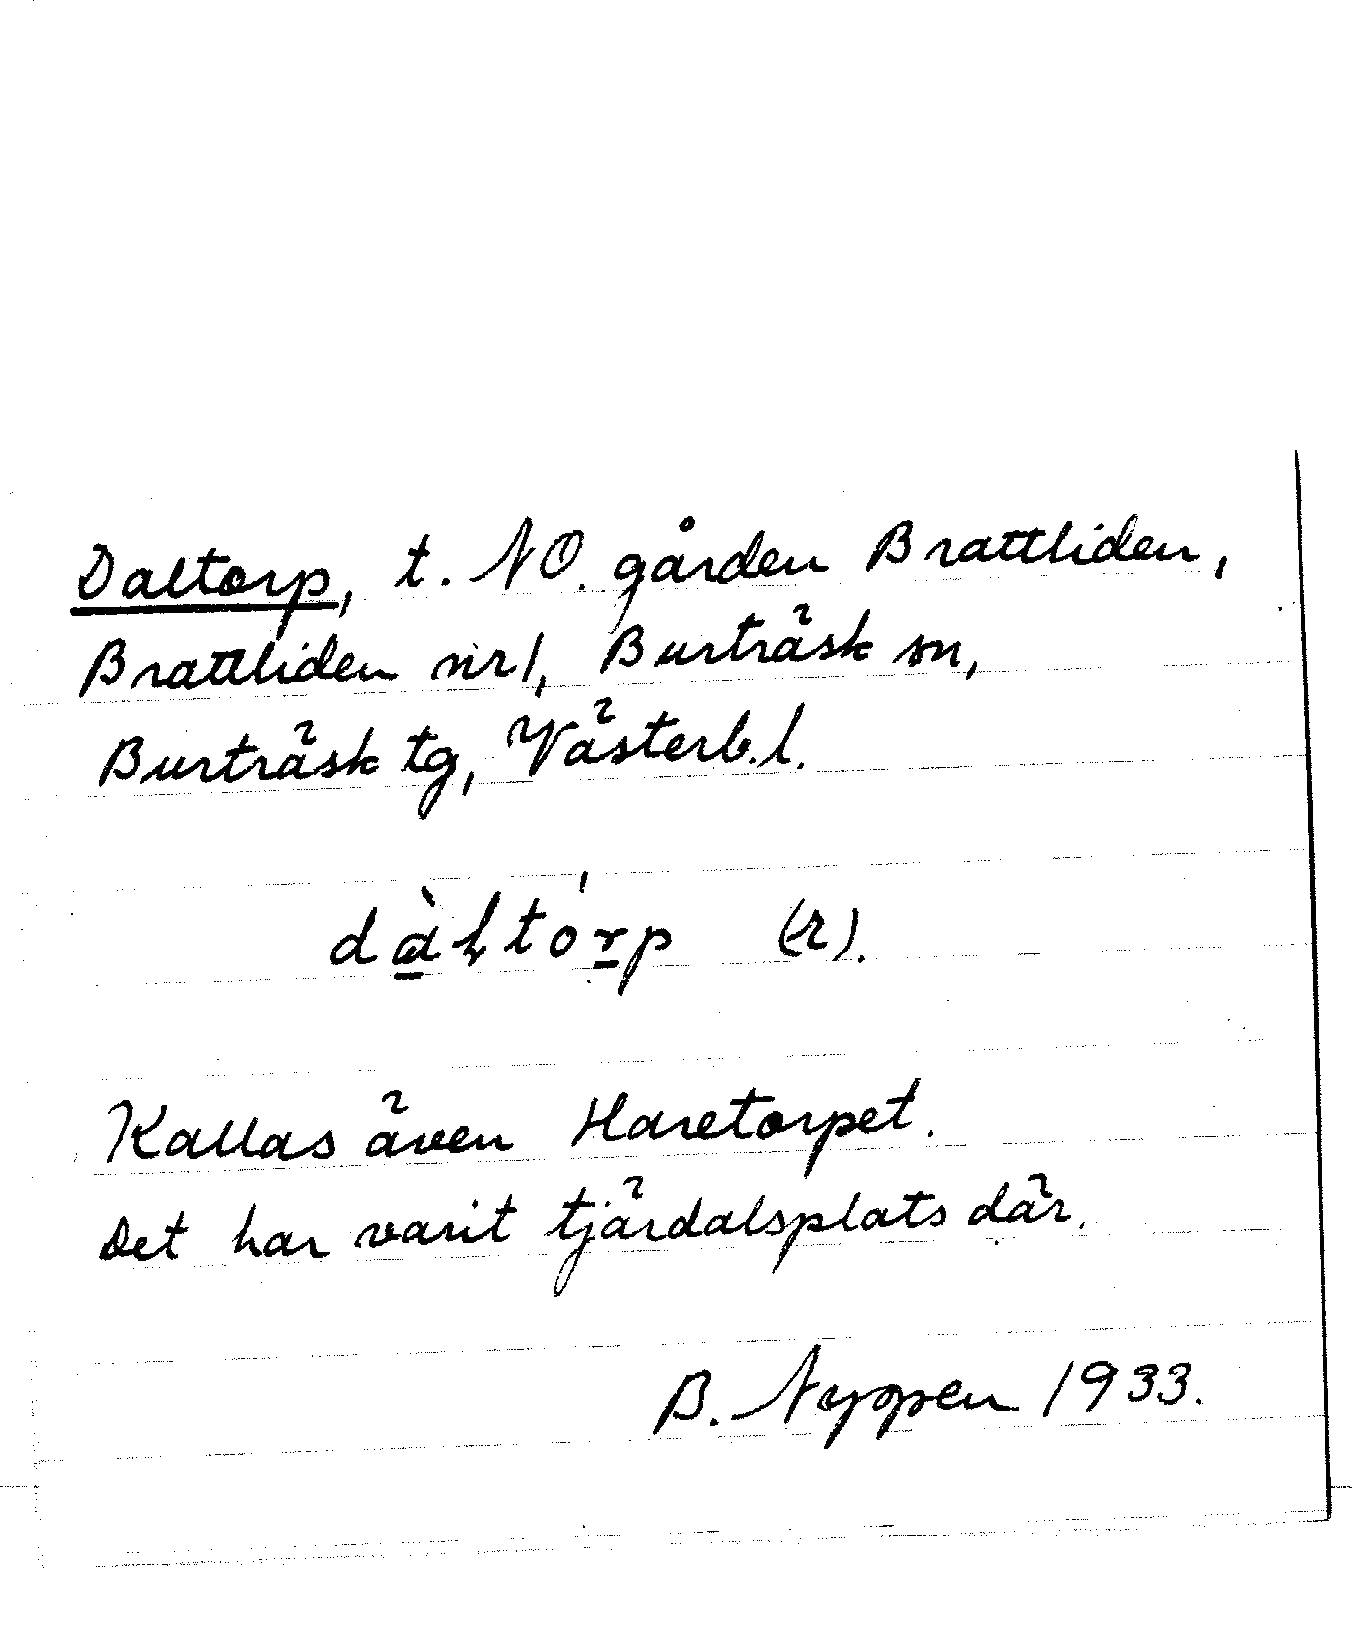 Daltorp, t. NO. gården Brattliden,
Brattliden nr 1, Burträsk sn,
Burträsk tg, Västerb.l.
(r).
Kallas även Haretorpet.
Det har varit tjärdalsplats där.
B. Nyppen 1933.